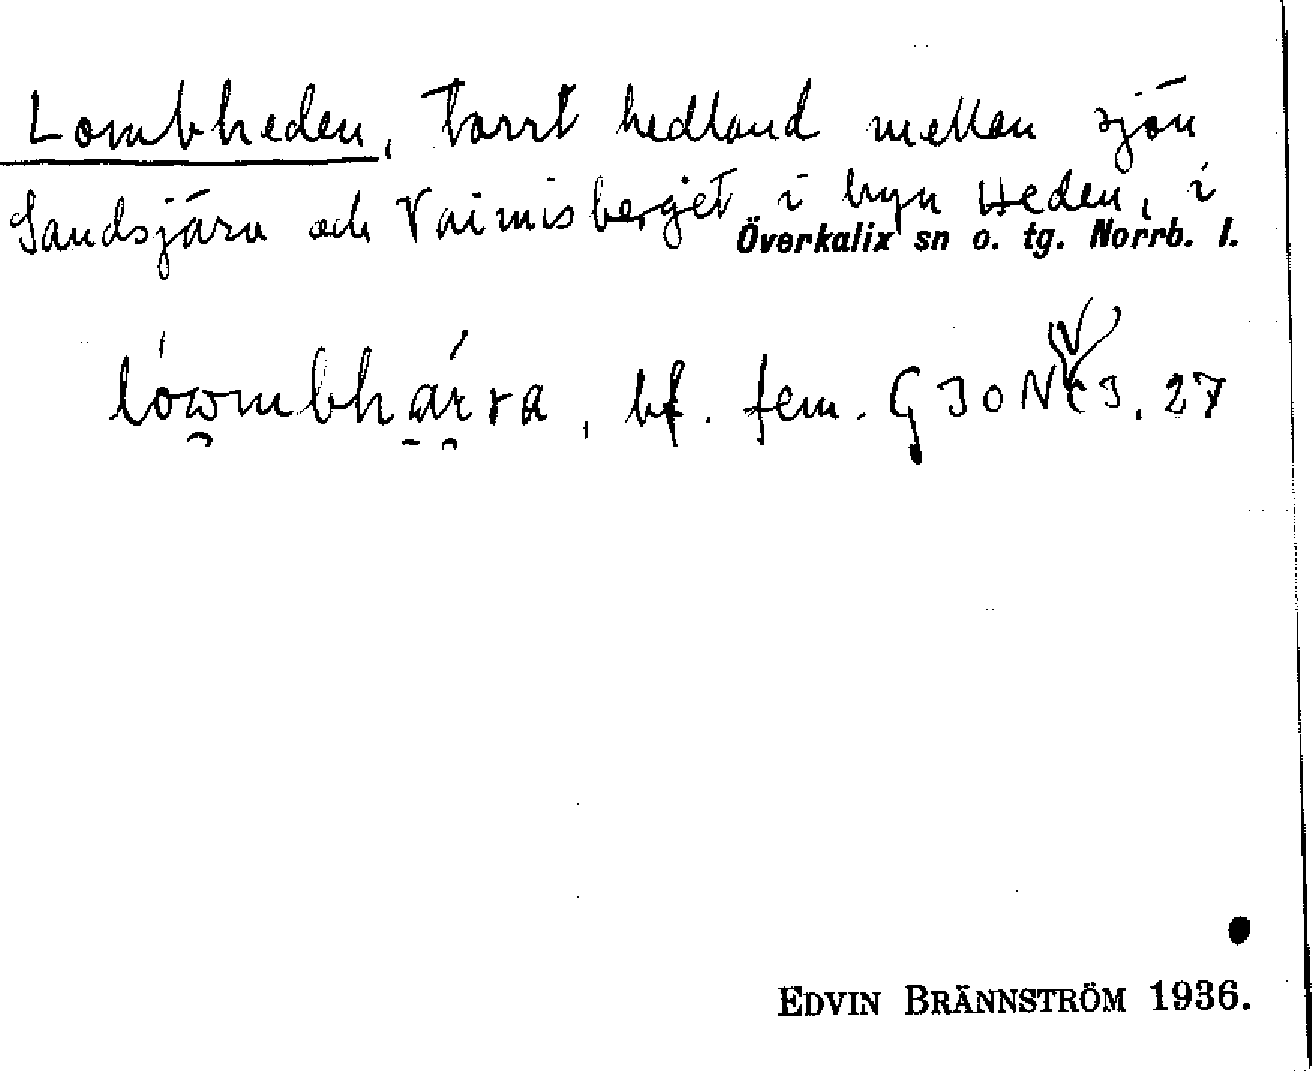 Lombheden, torrt hedland mellan sjön
Sandsjärv och Vaimisberget i byn Heden, i
Överkalix sn o. tg. Norrb. l.
lówmbhárra, bf. fem. G 30 NV 3, 27
EDVIN BRÄNNSTRÖM 1936.